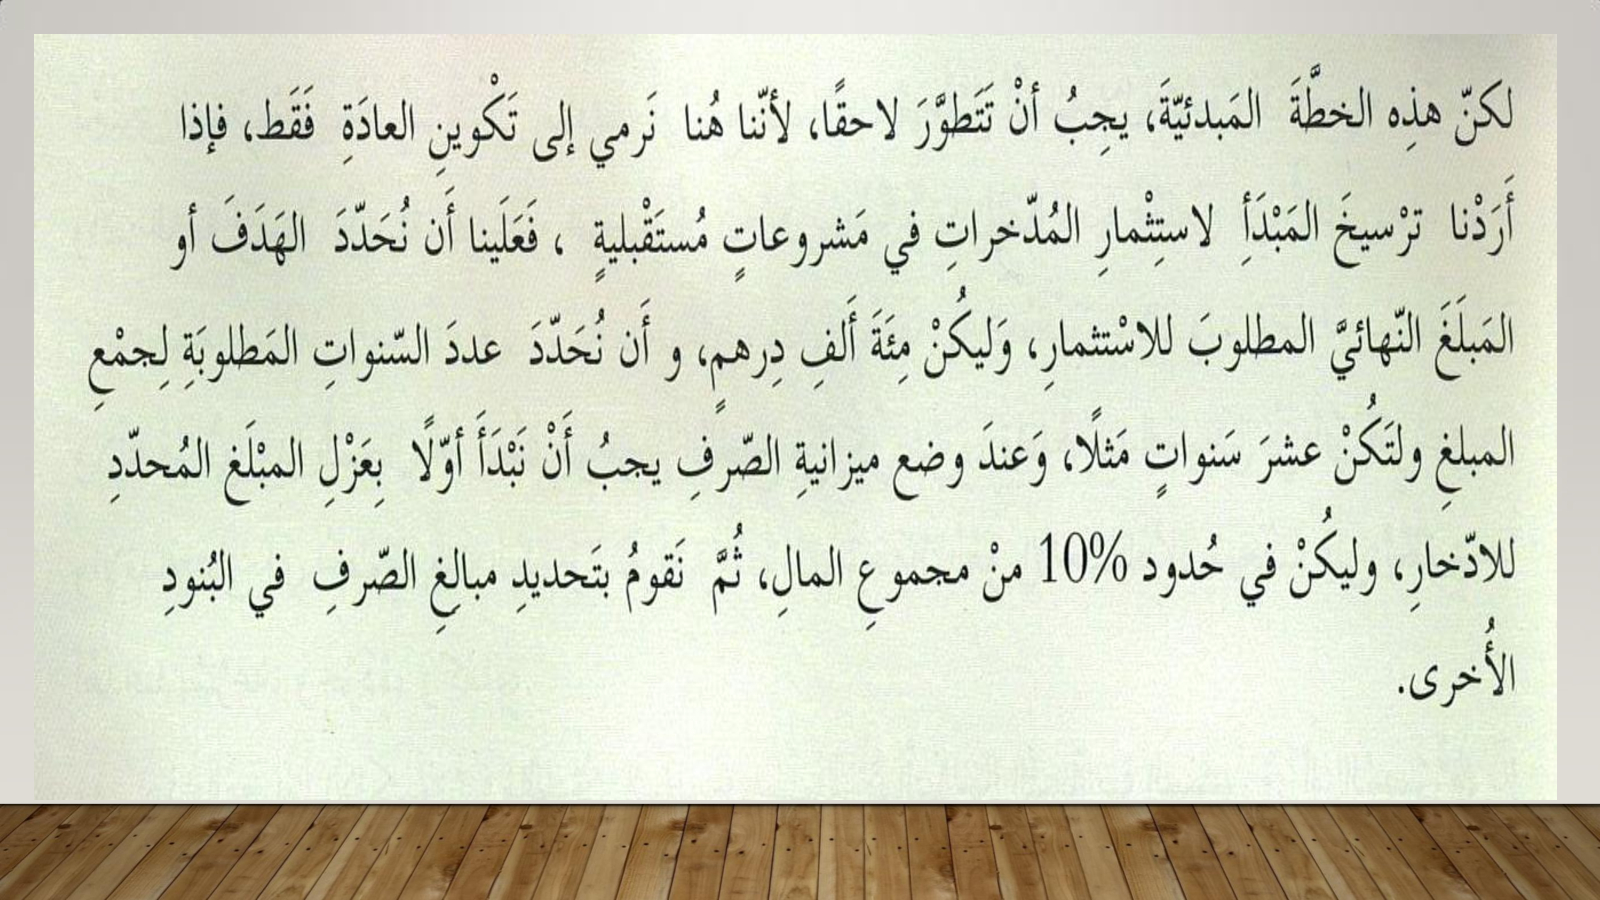 لكنّ هذِه الخطَّةَ المَبدئيّةَ، يجِبُ أنْ تَتَطوَّرَ لاحقًا، لأنّنا هُنا نَرمي إلى تَكْوينِ العادَةِ فَقَط، فإذا
أَرَدْنا ترْسيخَ المَبْدَأِ لاستِثْمارِ المُدّخراتِ في مَشروعاتٍ مُستَقْبليةٍ ، فَعَلَينا أَن نُحَدّدَ الهَدَفَ أو
المَبلَغَ النّهائيَّ المطلوبَ للاسْتثمارِ، وَليكُنْ مِئَةَ أَلفِ دِرهمٍ، و أَن نُحَدّدَ عددَ السّنواتِ المَطلوبَةِ لِجمْعِ
المبلغِ ولتَكُنْ عشرَ سَنواتٍ مَثلًا، وَعندَ وضع ميزانيةِ الصّرفِ يجبُ أَنْ نَبْدَأَ أوّلًا بِعَزْلِ المبْلَغ المُحدّدِ
للادّخارِ، وليكُنْ في حُدود 10% منْ مجموعِ المالِ، ثُمَّ نَقومُ بتَحديدِ مبالغِ الصّرفِ في البُنودِ
الأُخرى.